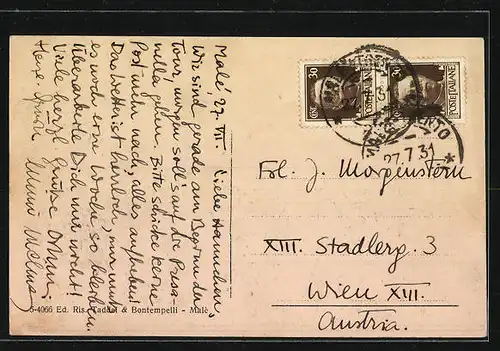 Malé, 27. VII. Liebe Hannchen,
Wir sind gerade am Beginn der
Tour, morgen soll's auf die Presa-
nella gehen. Bitte schicke keine
Post mehr nach, alles aufheben!
Das Wetter ist herrlich, nur muß
es noch eine Woche so bleiben.
Überarbeite Dich nur nicht!
Viele herzl. Grüße
Herzl. Grüße
5-4066 Ed. Ris. Taddei & Bontempelli - Malè
30
POSTE ITALIANE
30
POSTE ITALIANE
27.7.31
Frl. J. Morgenstern
XIII. Stadlerg. 3
Wien XIII.
Austria.